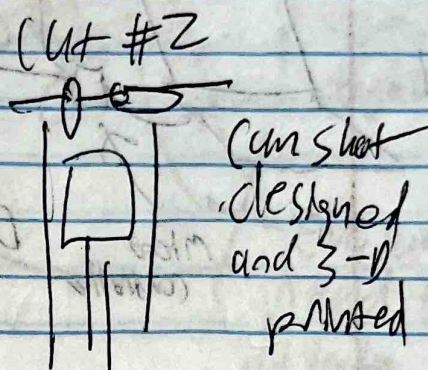 Cut #2
Cam shaft
designed
and 3-D
printed